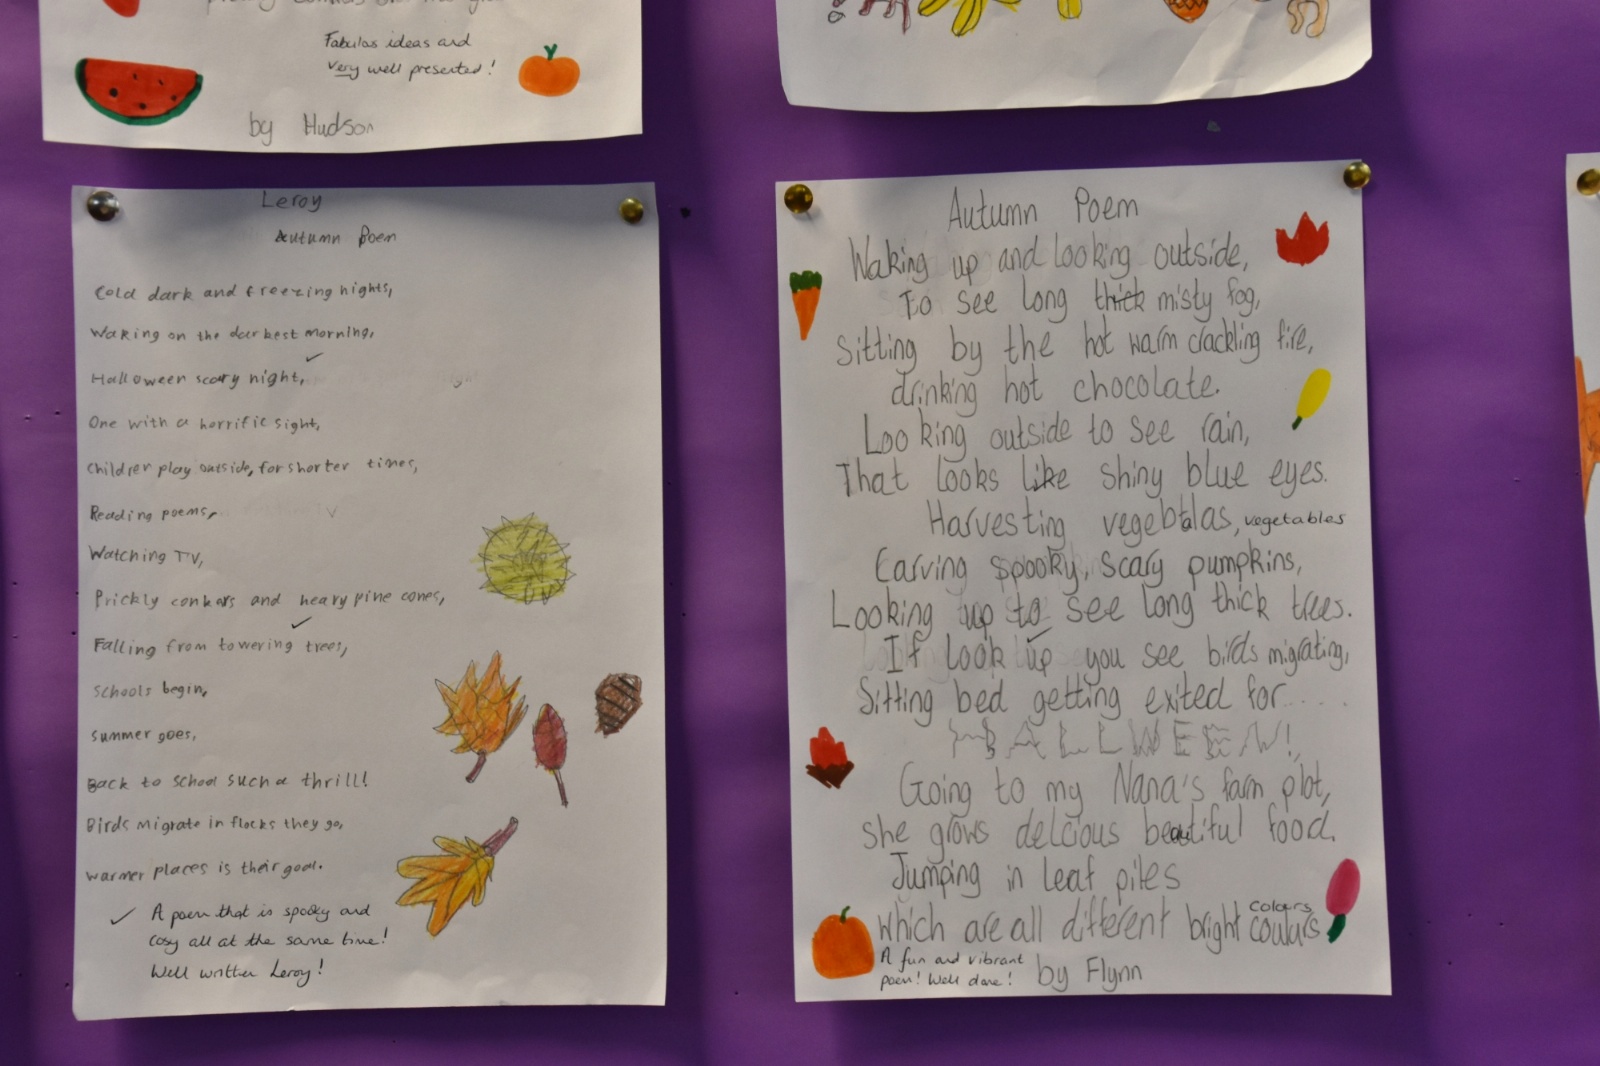 Fabulas ideas and
very well presented!
by Hudson
Leroy
Autumn Poem
Cold dark and freezing nights,
Waking on the darkest morning,
Halloween scary night,
One with a horrific sight,
children play outside, for shorter times,
Reading poems,
Watching TV,
Prickly conkars and heavy pine cones,
Falling from towering trees,
schools begin,
summer goes,
Back to school such a thrill!
Birds migrate in flocks they go,
warmer places is their goal.
A poem that is spooky and
cosy all at the same time!
Well written Leroy!
Autumn Poem
Waking up and looking outside,
To see long thick misty fog,
Sitting by the hot warm crackling fire,
drinking hot chocolate.
Looking outside to see rain,
That looks like shiny blue eyes.
Harvesting vegetables
Carving spooky, scary pumpkins,
Looking up to see long thick trees.
If look up you see birds migrating,
Sitting bed getting exited for.....
HALLWEEN!
Going to my Nana's farm plot,
she grows delcious beautiful food.
Jumping in leaf piles
which are all different bright coulars
colours
A fun and vibrant
poem! Well done!
by Flynn